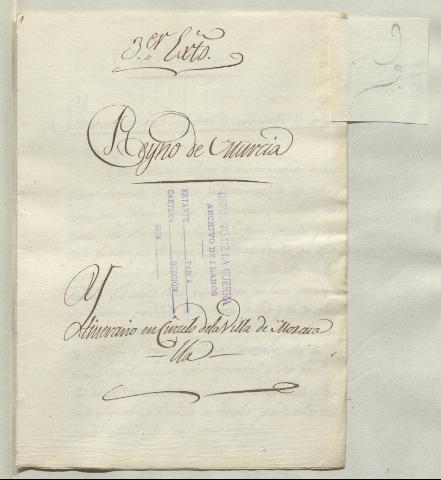 3.er Exto.
Reyno de Murcia
DEPOSITO DE LA GUERRA
ARCHIVO DE PLANOS
ESTANTE TABLA
CARPETA SECCION
NUM
Ytinerario en Circulo de la Villa de Morata
lla